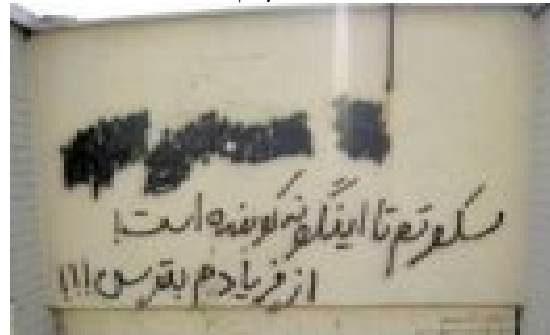 سکوتم تا اینگونه کوبنده است!
از فریادم بترس!!!